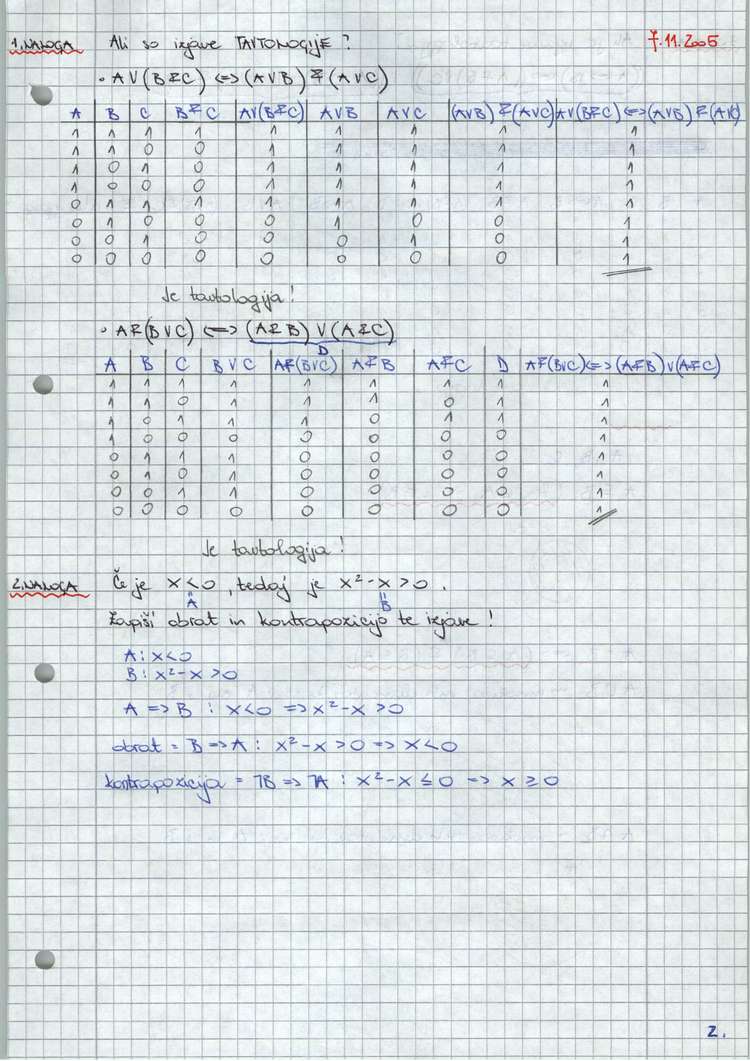 1.NALOGA Ali so izjave TAVTOLOGIJE? 7.11.2005
• A∨(B&C) <=> (A∨B) & (A∨C)
A B C B&C A∨(B&C) A∨B A∨C (A∨B) & (A∨C) A∨(B&C) <=> (A∨B) & (A∨C)
1 1 1 1 1 1 1 1 1
1 1 0 0 1 1 1 1 1
1 0 1 0 1 1 1 1 1
1 0 0 0 1 1 1 1 1
0 1 1 1 1 1 1 1 1
0 1 0 0 0 1 0 0 1
0 0 1 0 0 0 1 0 1
0 0 0 0 0 0 0 0 1
Je tavtologija!
• A&(B∨C) <=> (A&B) ∨ (A&C)
D
A B C B∨C A&(B∨C) A&B A&C D A&(B∨C) <=> (A&B) ∨ (A&C)
1 1 1 1 1 1 1 1 1
1 1 0 1 1 1 0 1 1
1 0 1 1 1 0 1 1 1
1 0 0 0 0 0 0 0 1
0 1 1 1 0 0 0 0 1
0 1 0 1 0 0 0 0 1
0 0 1 1 0 0 0 0 1
0 0 0 0 0 0 0 0 1
Je tavtologija!
2.NALOGA Če je x<0, tedaj je x²-x>0.
A B
Zapiši obrat in kontrapozicijo te izjave!
A: x<0
B: x²-x>0
A => B : x<0 => x²-x>0
obrat = B => A : x²-x>0 => x<0
kontrapozicija = ¬B => ¬A : x²-x≤0 => x≥0
2.